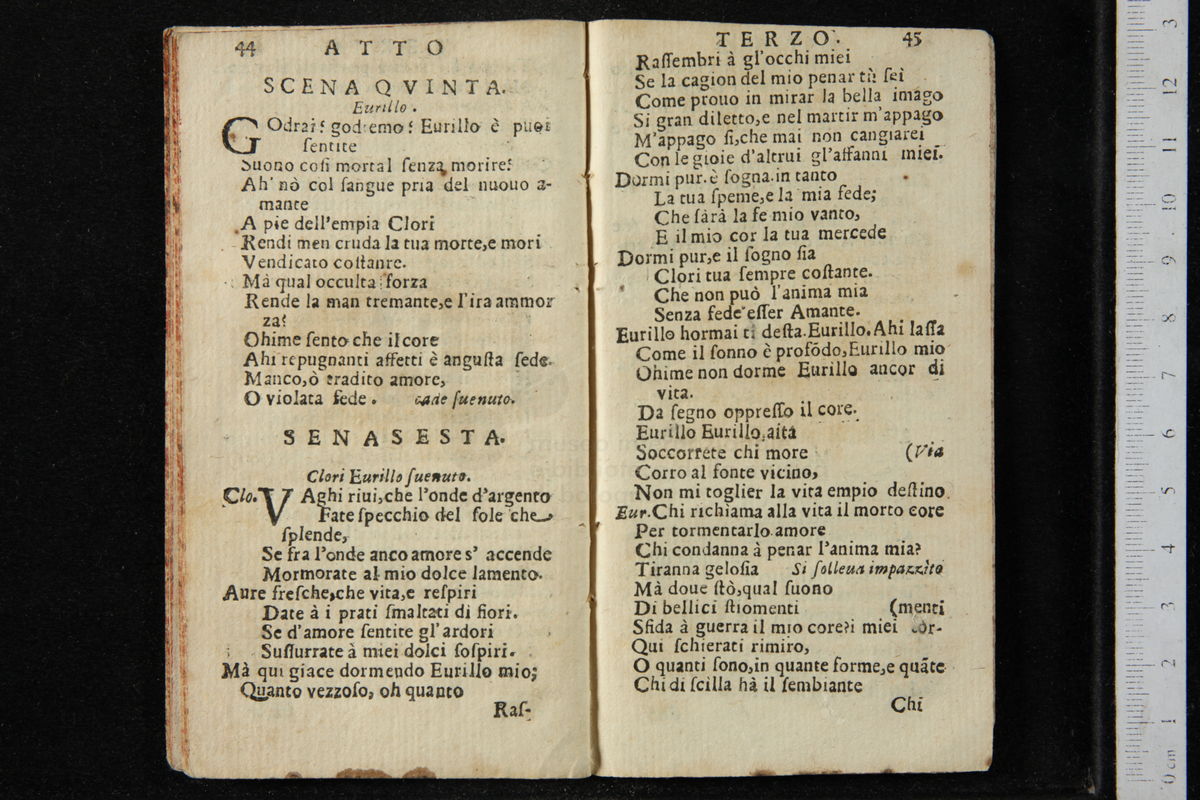 44 ATTO
SCENA QVINTA.
Eurillo.
GOdrai? godremo? Eurillo è puoi
ſentite
Suono coſi mortal ſenza morire?
Ah' nò col ſangue pria del nuouo a-
mante
A pie dell'empia Clori
Rendi men cruda la tua morte,e mori
Vendicato coſtante.
Mà qual occulta forza
Rende la man tremante,e l'ira ammor
za?
Ohime ſento che il core
Ahi repugnanti affetti è anguſta ſede.
Manco,ò tradito amore,
O violata fede. cade ſuenuto.
SENA SESTA.
Clori Eurillo ſuenuto.
Clo. VAghi riui,che l'onde d'argento
Fate ſpecchio del ſole che
ſplende,
Se fra l'onde anco amore s' accende
Mormorate al mio dolce lamento.
Aure freſche,che vita,e reſpiri
Date à i prati ſmaltati di fiori.
Se d'amore ſentite gl'ardori
Suſſurrate à miei dolci ſoſpiri.
Mà qui giace dormendo Eurillo mio;
Quanto vezzoſo, oh quanto
Raſ-
TERZO. 45
Raſſembri à gl'occhi miei
Se la cagion del mio penar tù ſei
Come prouo in mirar la bella imago
Si gran diletto,e nel martir m'appago
M'appago ſi,che mai non cangiarei
Con le gioie d'altrui gl'affanni miei.
Dormi pur.è ſogna.in tanto
La tua ſpeme,e la mia fede;
Che ſarà la fe mio vanto,
E il mio cor la tua mercede
Dormi pur,e il ſogno ſia
Clori tua ſempre coſtante.
Che non può l'anima mia
Senza fede eſſer Amante.
Eurillo hormai ti deſta.Eurillo.Ahi laſſa
Come il ſonno è profõdo,Eurillo mio
Ohime non dorme Eurillo ancor di
vita.
Da ſegno oppreſſo il core.
Eurillo Eurillo,aita
Soccorrete chi more (Via
Corro al fonte vicino,
Non mi toglier la vita empio deſtino.
Eur.Chi richiama alla vita il morto core
Per tormentarlo amore
Chi condanna à penar l'anima mia?
Tiranna geloſia Si ſolleua impazzito
Mà doue ſtò,qual ſuono
Di bellici ſtiomenti (menti
Sfida à guerra il mio core?i miei tor-
Qui ſchierati rimiro,
O quanti ſono,in quante forme,e quãte
Chi di ſcilla hà il ſembiante
Chi
0 cm 1 2 3 4 5 6 7 8 9 10 11 12
3